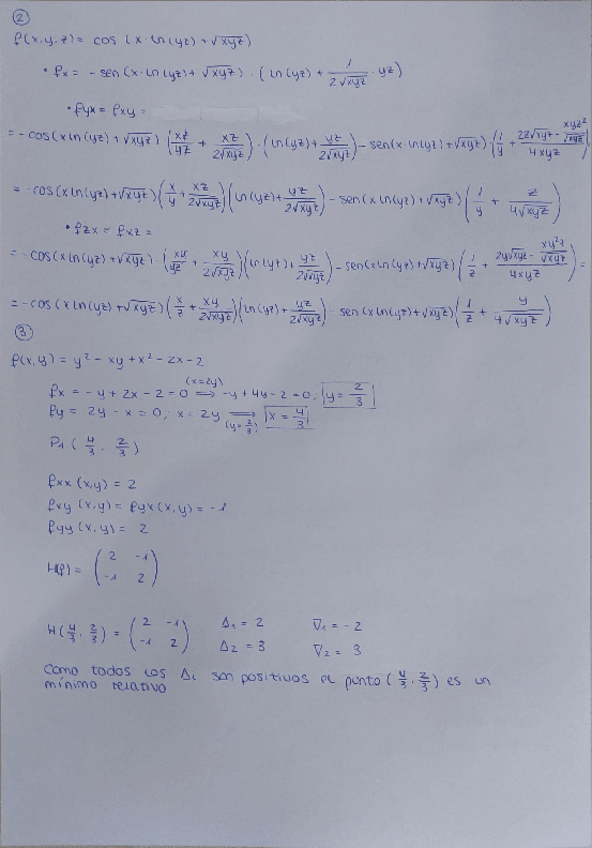 ②
f(x,y,z) = cos (x·ln(yz) + √xyz)
• fx = - sen (x·ln(yz) + √xyz) · (ln(yz) + 1/(2√xyz) · yz)
• fyx = fxy =
= - cos(x ln(yz) + √xyz) (xz/yz + xz/(2√xyz)) · (ln(yz) + yz/(2√xyz)) - sen(x·ln(yz) + √xyz) (1/y + (2z√xyz - xyz²/√xyz)/(4xyz))
= - cos(x ln(yz) + √xyz) (x/y + xz/(2√xyz)) (ln(yz) + yz/(2√xyz)) - sen(x ln(yz) + √xyz) (1/y + z/(4√xyz))
• fzx = fxz =
= - cos(x ln(yz) + √xyz) · (xy/yz + xy/(2√xyz)) (ln(yz) + yz/(2√xyz)) - sen(x ln(yz) + √xyz) (1/z + (2y√xyz - xy²z/√xyz)/(4xyz)) =
= - cos (x ln(yz) + √xyz) (x/z + xy/(2√xyz)) (ln(yz) + yz/(2√xyz)) - sen (x ln(yz) + √xyz) (1/z + y/(4√xyz))
③
f(x,y) = y² - xy + x² - 2x - 2
fx = -y + 2x - 2 = 0 ⟹ (x=2y) -y + 4y - 2 = 0; y = 2/3
fy = 2y - x = 0; x = 2y ⟹ (y=2/3) x = 4/3
P₁ (4/3, 2/3)
fxx (x,y) = 2
fxy (x,y) = fyx (x,y) = -1
fyy (x,y) = 2
H(f) = (2 -1
-1 2)
H(4/3, 2/3) = (2 -1 Δ₁ = 2 ∇₁ = -2
-1 2) Δ₂ = 3 ∇₂ = 3
Como todos los Δi son positivos el punto (4/3, 2/3) es un
mínimo relativo